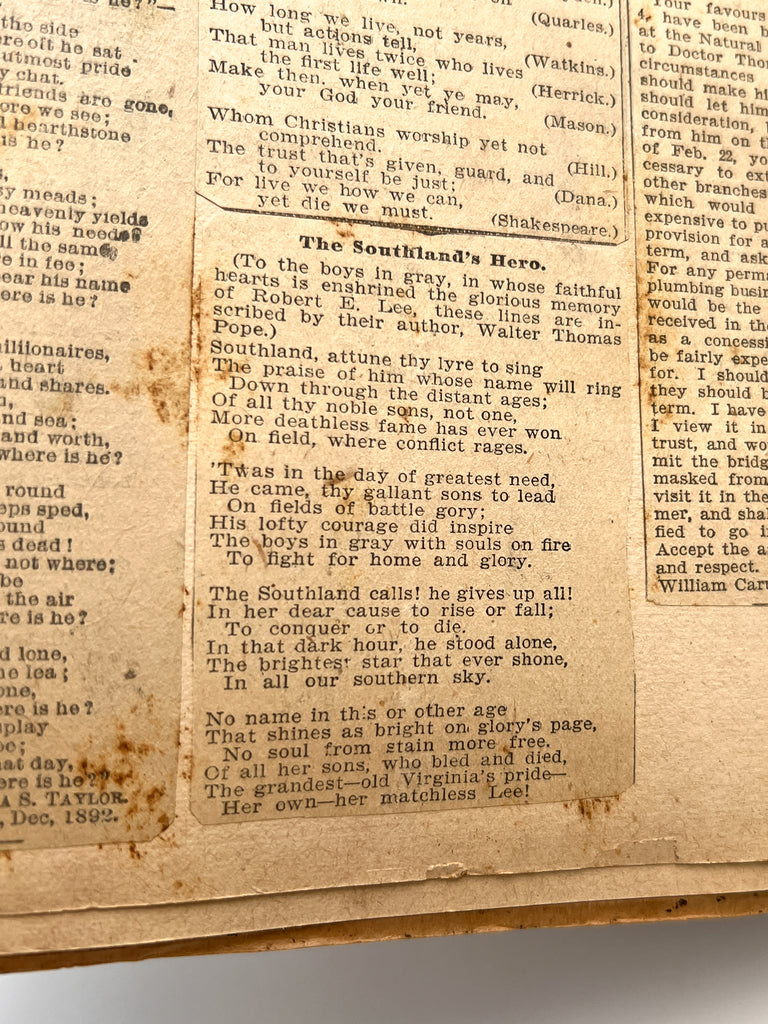 the side
he sat
utmost pride
chat.
friends are gone,
we see;
hearthstone
is he?
meads;
heavenly yields
his needs
the same
in fee;
his name
is he?
heart
and shares.
sea;
and worth,
where is he?
round
sped,
dead!
not where;
be
the air
is he?
lone,
lea;
is he?
day,
is he?"
S. TAYLOR.
Dec, 1892.
(Quarles.)
How long we live, not years,
but actions tell,
(Watkins.)
That man lives twice who lives
the first life well;
(Herrick.)
Make then, when yet ye may,
your God your friend.
(Mason.)
Whom Christians worship yet not
comprehend.
(Hill.)
The trust that's given, guard, and
to yourself be just;
(Dana.)
For live we how we can,
yet die we must.
(Shakespeare.)
The Southland's Hero.
(To the boys in gray, in whose faithful
hearts is enshrined the glorious memory
of Robert E. Lee, these lines are in-
scribed by their author, Walter Thomas
Pope.)
Southland, attune thy lyre to sing
The praise of him whose name will ring
Down through the distant ages;
Of all thy noble sons, not one,
More deathless fame has ever won
On field, where conflict rages.
'Twas in the day of greatest need,
He came, thy gallant sons to lead
On fields of battle gory;
His lofty courage did inspire
The boys in gray with souls on fire
To fight for home and glory.
The Southland calls! he gives up all!
In her dear cause to rise or fall;
To conquer or to die.
In that dark hour, he stood alone,
The brightest star that ever shone,
In all our southern sky.
No name in this or other age
That shines as bright on glory's page,
No soul from stain more free.
Of all her sons, who bled and died,
The grandest—old Virginia's pride—
Her own—her matchless Lee!
favours
have been
at the Natural
to Doctor
circumstances
should make
should let him
consideration,
from him on
of Feb. 22,
cessary to
other branches
which would
expensive to
provision for a
term, and
For any
plumbing
would be the
received in
as a
be fairly
for. I should
they should
term. I have
I view it in
trust, and
mit the
masked from
visit it in the
mer, and
fied to go
Accept the
and respect.
William